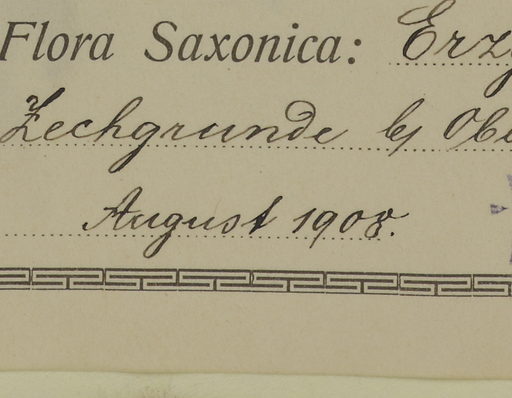 Flora Saxonica: Erzg
Zechgrunde b/ Obe
August 1908.